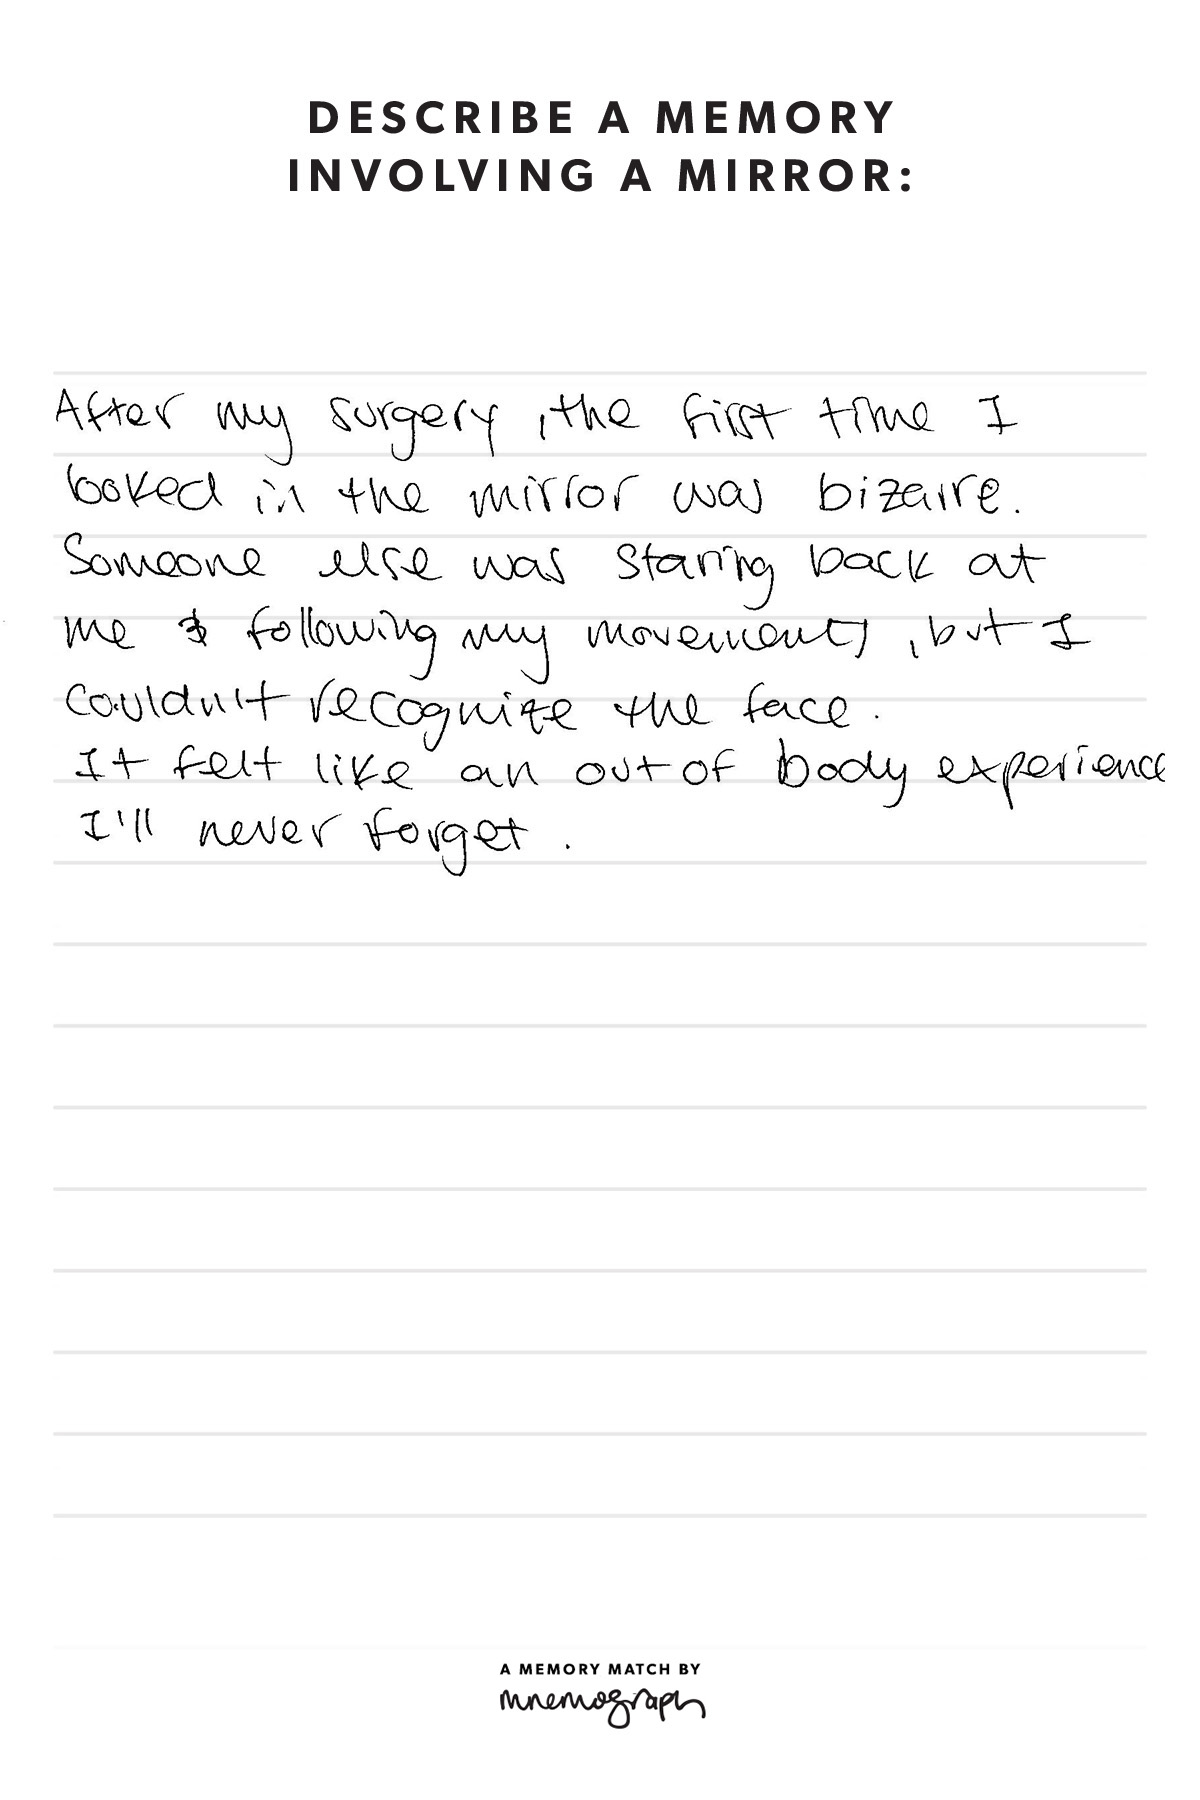 DESCRIBE A MEMORY
INVOLVING A MIRROR:
After my surgery, the first time I
looked in the mirror was bizarre.
Someone else was staring back at
me & following my movements, but I
couldn't recognize the face.
It felt like an out of body experience
I'll never forget.
A MEMORY MATCH BY
mnemograph